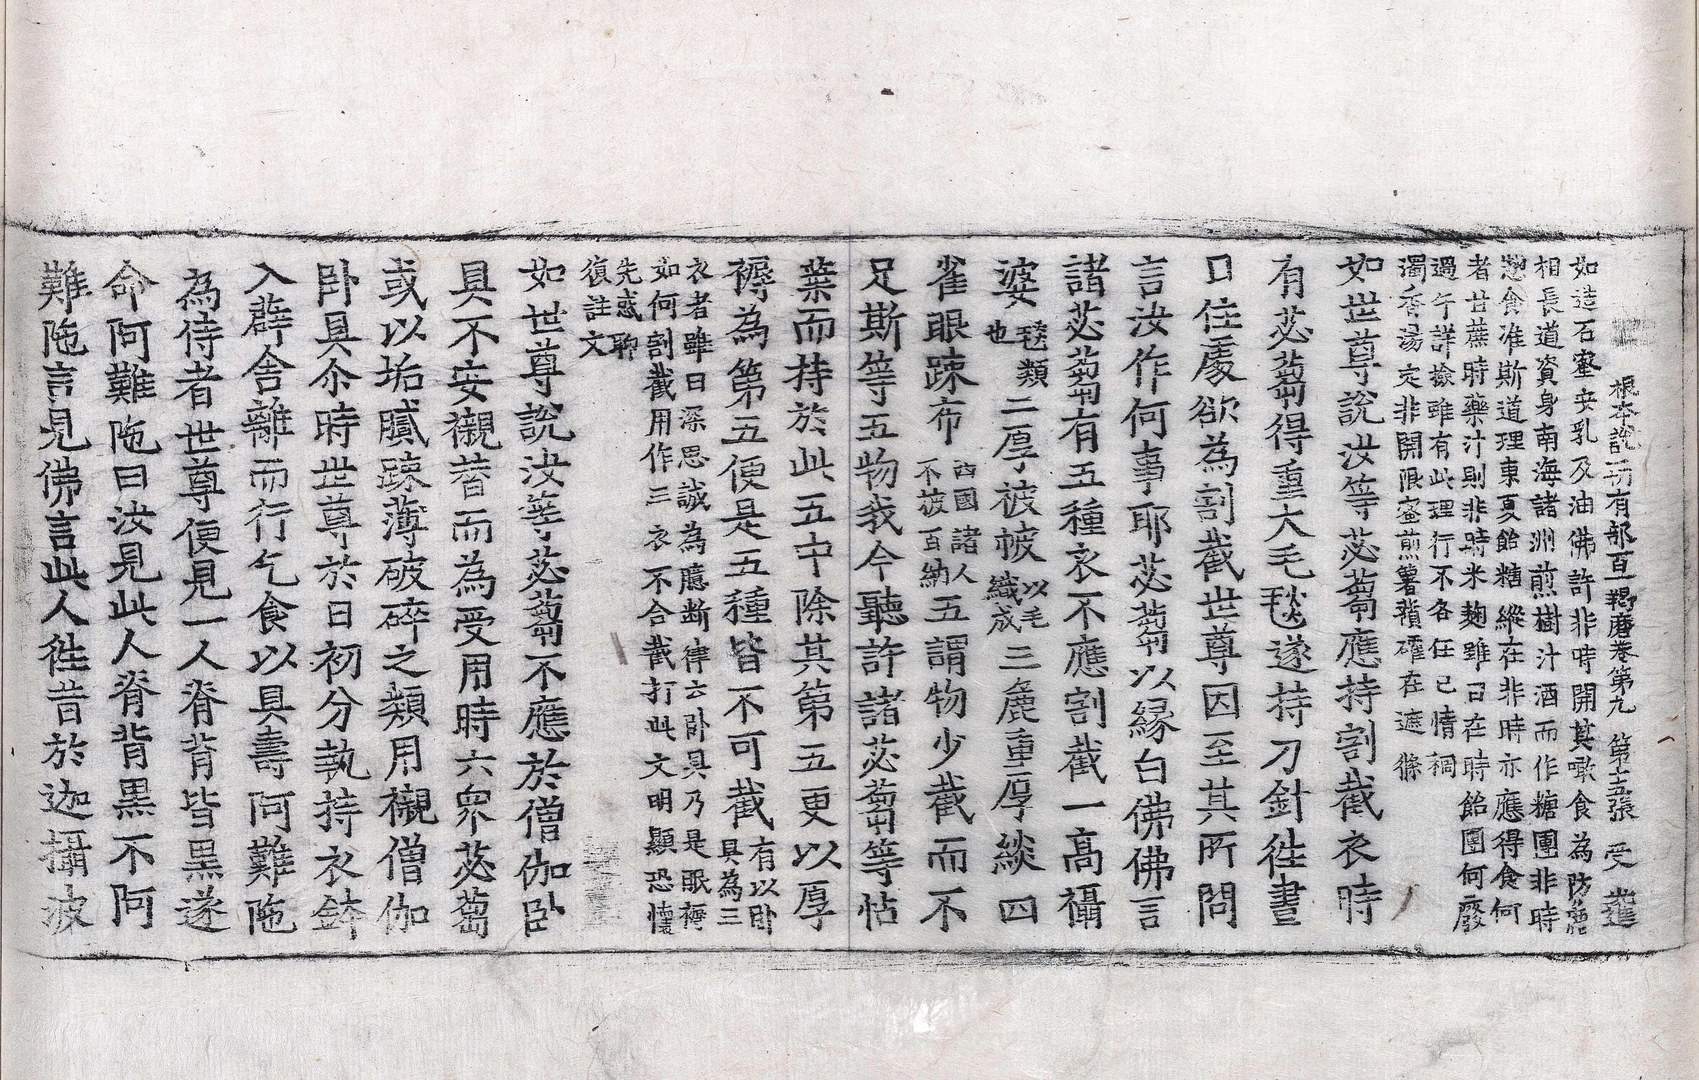 根本說一切有部百一羯磨卷第九 第十五張 受
如造石蜜安乳及油佛許非時開其噉食為防麁
相長道資身南海諸洲煎樹汁酒而作糖團非時
惣食准斯道理東夏飴糖縱在非時亦應得食何
者甘蔗時藥汁則非時米麴雖曰在時飴團何廢
過午詳撿雖有此理行不各任己情稠
濁香湯定非開限蜜煎薯蕷確在遮條
如世尊說汝等苾蒭應持割截衣時
有苾蒭得重大毛毯遂持刀針往晝
日住處欲為割截世尊因至其所問
言汝作何事耶苾蒭以緣白佛佛言
諸苾蒭有五種衣不應割截一高攝
婆毯類也二厚被帔以毛織成三麁重厚緂四
雀眼踈布西國諸人不被百納五謂物少截而不
足斯等五物我今聽許諸苾蒭等帖
葉而持於此五中除其第五更以厚
褥為第五便是五種皆不可截有以卧具為三
衣者雖曰深思誠為臆断律云卧具乃是眠褥
如何割截用作三衣不合截打此文明顯恐懷
先惑聊
復註文
如世尊說汝等苾蒭不應於僧伽卧
具不安襯替而為受用時六衆苾蒭
或以垢膩踈薄破碎之類用襯僧伽
卧具尒時世尊於日初分執持衣鉢
入薜舍離而行乞食以具壽阿難陁
為侍者世尊便見一人脊背皆黑遂
命阿難陁曰汝見此人脊背黒不阿
難陁言見佛言此人徃昔於迦攝波